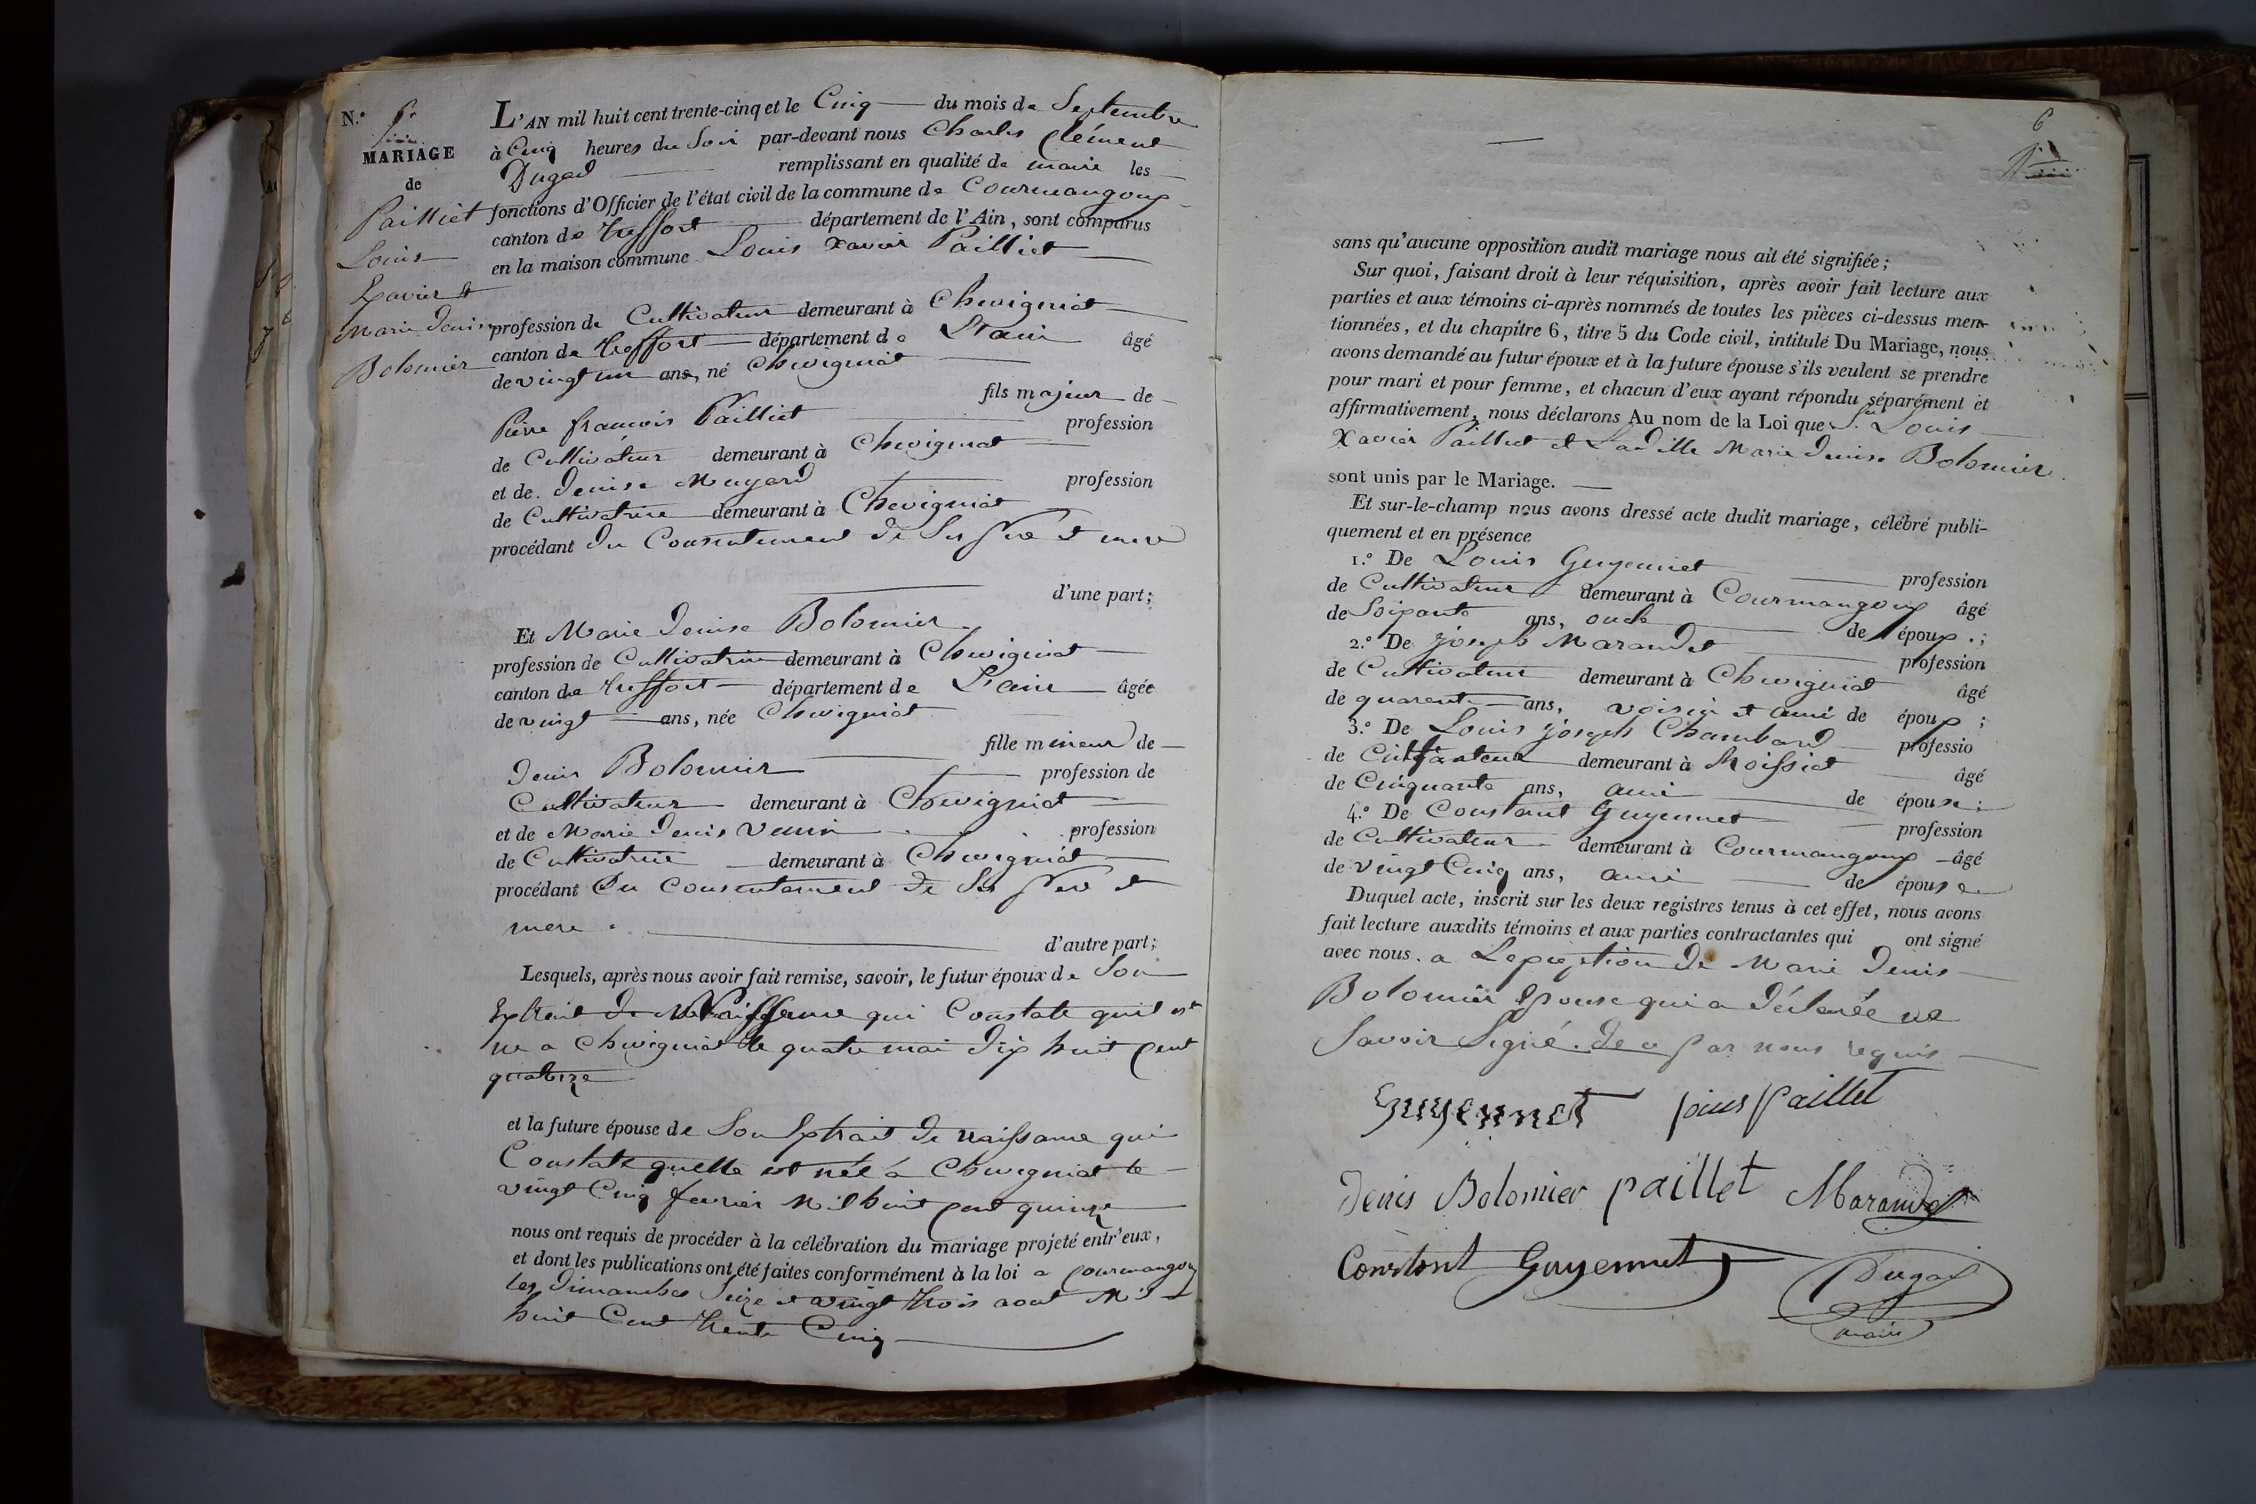 N.º 6
MARIAGE
de
Pailliet
Louis
Xavier et
Marie Denise
Bolomier
L'AN mil huit cent trente-cinq et le Cinq du mois de Septembre
à Cinq heures du Soir par-devant nous Charles Clément
Dugad remplissant en qualité de maire les
fonctions d'Officier de l'état civil de la commune de Courmangoux
canton de treffort département de l'Ain, sont comparus
en la maison commune Louis Xavier Pailliet
profession de Cultivateur demeurant à Chevigniat
canton de treffort département de L'ain âgé
de vingt un ans, né Chevigniat
fils majeur de
Pierre françois Pailliet profession
de Cultivateur demeurant à Chevigniat
et de Denise Muyard profession
de Cultivatrice demeurant à Chevigniat
procédant Du Consentement De Ses Pere et mere
d'une part;
Et Marie Denise Bolomier
profession de Cultivatrice demeurant à Chevigniat
canton de treffort département de L'ain âgée
de vingt ans, née Chevigniat
fille mineur de
Denis Bolomier profession de
Cultivateur demeurant à Chevigniat
et de Marie Denis profession
de Cultivatrice demeurant à Chevigniat
procédant Du Consentement De Ses Pere et
mere.
d'autre part;
Lesquels, après nous avoir fait remise, savoir, le futur époux de Son
Extrait De Naissance qui Constate quil est
ne a Chevigniat le quatre mai Dix huit Cent
quatorze
et la future épouse de Son Extrait De naissance qui
Constate quelle est née a Chevigniat le
vingt Cinq fevrier Mil huit Cent quinze
nous ont requis de procéder à la célébration du mariage projeté entr'eux,
et dont les publications ont été faites conformément à la loi a Courmangoux
les Dimanches Seize et vingt trois aout Mil
huit Cent trente Cinq
6
sans qu'aucune opposition audit mariage nous ait été signifiée;
Sur quoi, faisant droit à leur réquisition, après avoir fait lecture aux
parties et aux témoins ci-après nommés de toutes les pièces ci-dessus men-
tionnées, et du chapitre 6, titre 5 du Code civil, intitulé Du Mariage, nous
avons demandé au futur époux et à la future épouse s'ils veulent se prendre
pour mari et pour femme, et chacun d'eux ayant répondu séparément et
affirmativement, nous déclarons Au nom de la Loi que Louis
Xavier Pailliet et Marie Denise Bolomier
sont unis par le Mariage.
Et sur-le-champ nous avons dressé acte dudit mariage, célébré publi-
quement et en présence
1.º De Louis Guyennet profession
de Cultivateur demeurant à Courmangoux âgé
de Soixante ans, oncle de époux.;
2.º De joseph Marandet profession
de Cultivateur demeurant à Chevigniat âgé
de quarente ans, voisin et ami de époux;
3.º De Louis joseph Chambard professio
de Cultivateur demeurant à Moissiat âgé
de Cinquante ans, ami de épouse;
4.º De Constant Guyennet profession
de Cultivateur demeurant à Courmangoux âgé
de vingt Cinq ans, ami de épouse
Duquel acte, inscrit sur les deux registres tenus à cet effet, nous avons
fait lecture auxdits témoins et aux parties contractantes qui ont signé
avec nous. a Lexception De Marie Denis
Bolomier Epouse qui a Déclarée ne
Savoir Signé. De ce par nous requis
Guyennet Louis Paillet
Denis Bolomier paillet Marandet
Constant Guyennet
Dugad
maire